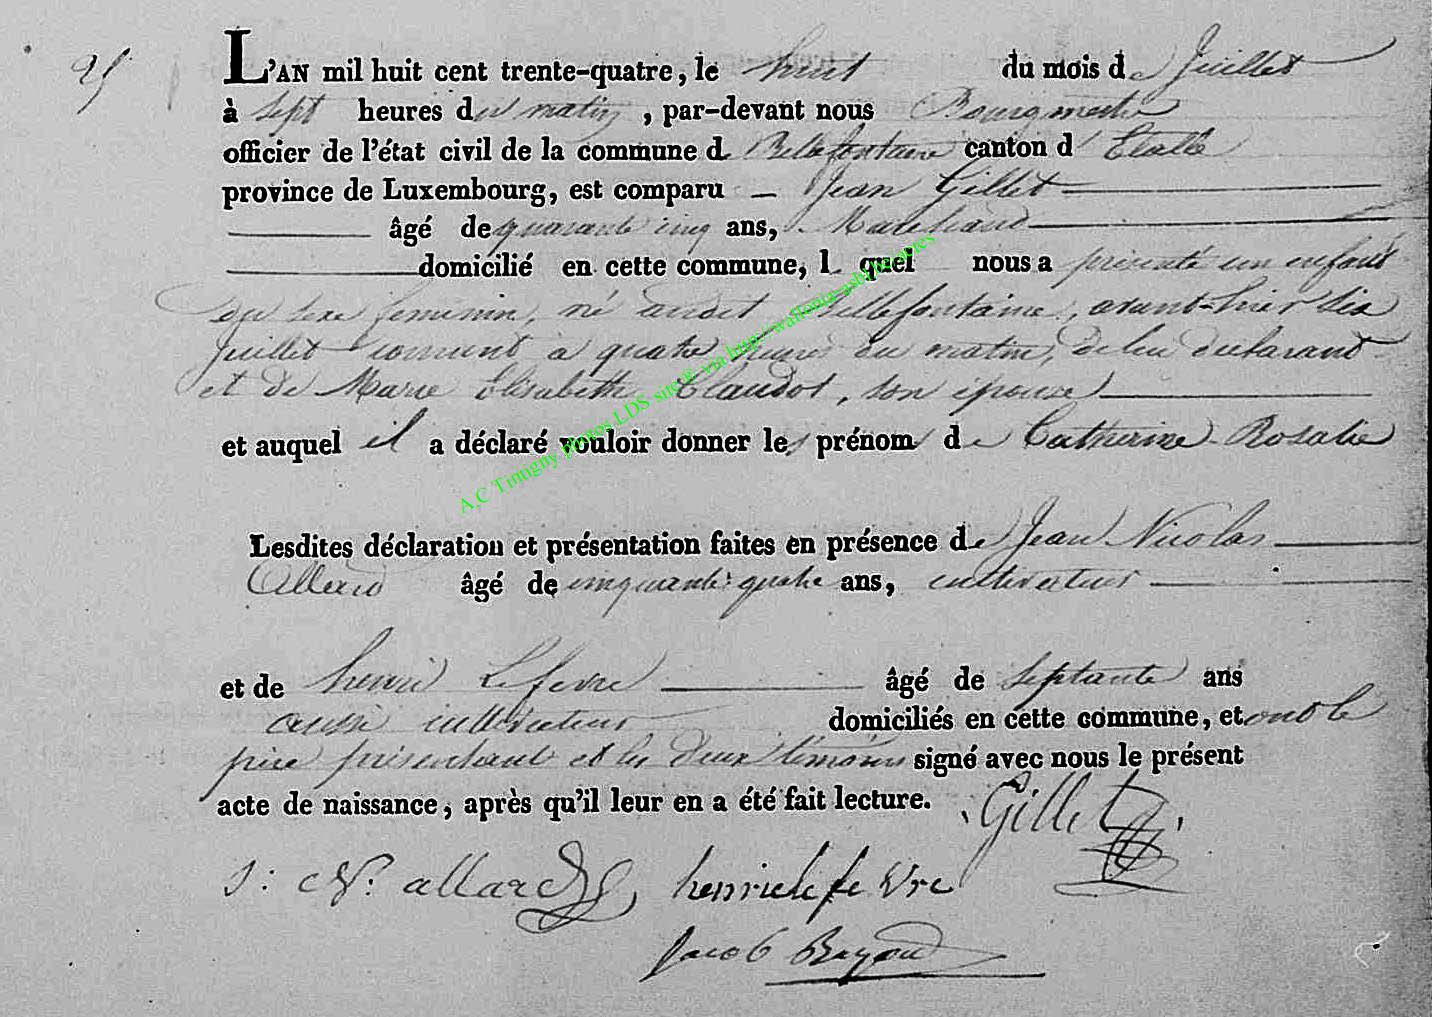 25
L'AN mil huit cent trente-quatre, le huit du mois de Juillet
à sept heures du matin, par-devant nous Bourgmestre
officier de l'état civil de la commune de Bellefontaine canton d'Etalle
province de Luxembourg, est comparu – Jean Gillet
âgé de quarante cinq ans, Marchand
domicilié en cette commune, lequel nous a présenté un enfant
du sexe feminin, né audit Bellefontaine, avant-hier six
Juillet courant à quatre heures du matin, de lui declarant
et de Marie Elisabeth Claudot, son épouse
et auquel il a déclaré vouloir donner les prénoms de Catherine Rosalie
A.C Tintigny photos LDS site® via http://wallonia-asbl.be/actes
Lesdites déclaration et présentation faites en présence de Jean Nicolas
Allard âgé de cinquante quatre ans, cultivateur
et de henri Lefevre âgé de septante ans
aussi cultivateur domiciliés en cette commune, et ont le
père présentant et les deux témoins signé avec nous le présent
acte de naissance, après qu'il leur en a été fait lecture. Gillet
J: N. allard henri le fe vre
Jacob